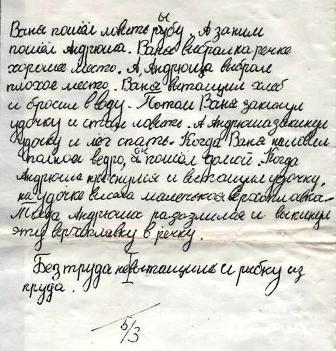 Ваня пошёл ловить рыбу. А за ним
пошёл Андрюша. Ваня выбрал на речке
хорошее место. А Андрюша выбрал
плохое место. Ваня вытащил хлеб
и бросил в воду. Потом Ваня закинул
удочку и стал ловить. А Андрюша закинул
удочку и лёг спать. Когда Ваня наловил
полное ведро, он пошёл домой. Когда
Андрюша проснулся и вытащил удочку,
на удочке висела маленькая верхоплавка.
Тогда Андрюша разозлился и выкинул
эту верхоплавку в речку.
Без труда не вытащишь и рыбку из
пруда.
5/3